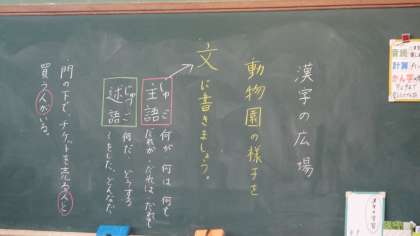 漢字の広場
動物園の様子を
文に書きましょう。
しゅご
主語
何が 何は 何も
だれが・だれは・だれも
じゅつご
述語
何だ どうする
どうした、どんなだ
門の下で チケットを売る人と
買う人がいる。
音読
計算
かん字